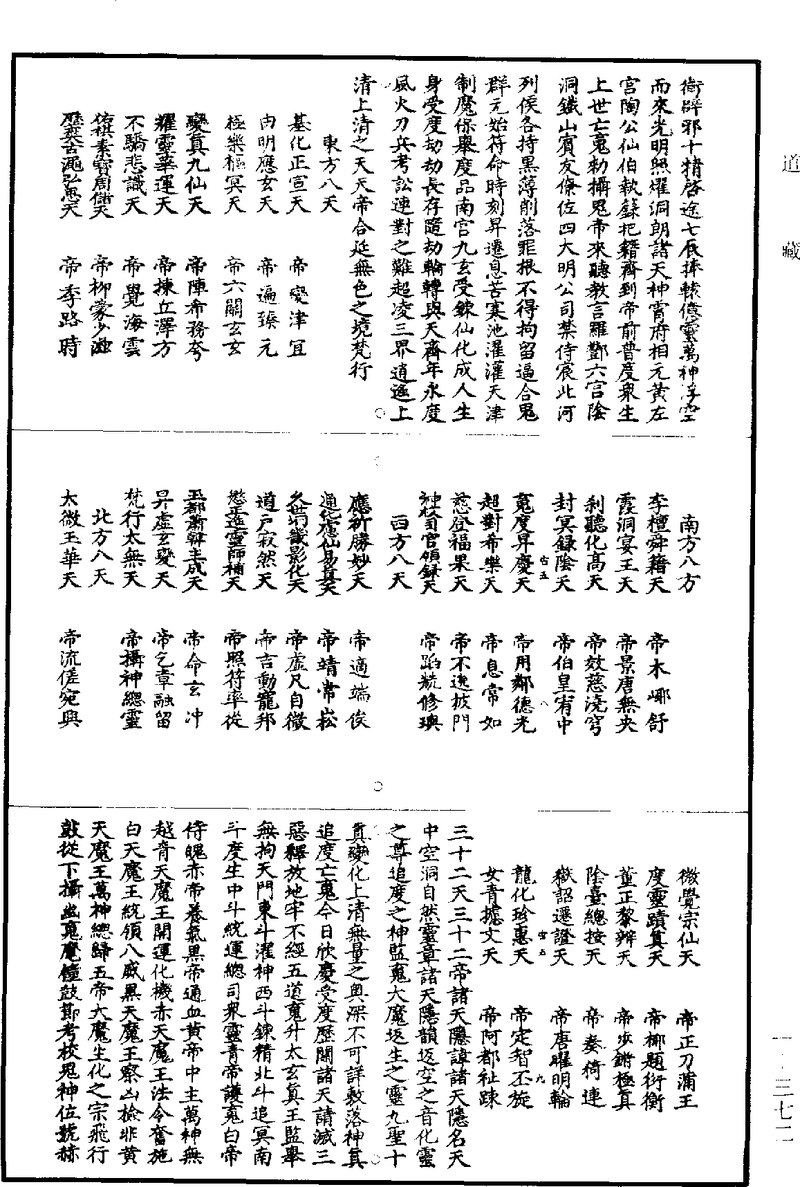 道藏
衛辟邪十精啓途七辰捧轅億靈萬神浮空
而來光明照耀洞朗諸天神霄府相元黃左
宮陶公仙伯執籙把籍齊到帝前普度衆生
上世亡䰟勑攝鬼帝來聽教言羅酆六宮陰
洞鐵山賓友條位四大明公司禁侍宸北河
列侯各持黑簿削落罪根不得拘留逼合鬼
群元始符命時刻昇遷息苦寒池濯灌天津
制魔保舉度品南宮九玄受鍊仙化成人生
身受度劫劫長存隨劫輪轉與天齊年永度
風火刀兵考訟連對之難超凌三界逍遙上
清上清之天天帝合延無色之境梵行
東方八天
基化正宣天 帝變津宜
由明應玄天 帝遍臻元
極樂樞冥天 帝六關玄玄
變真九仙天 帝陣希務夸
耀靈華運天 帝棟立澤方
不驕悲識天 帝覺海雲
佑祺素寶周儲天 帝柳蒙少
歷奕吉澠弘思天 帝李路時
南方八方
李檀舜籍天 帝木㟓舒
霞洞宴王天 帝景唐無央
刹聽化高天 帝效慈澆穹
封冥録陰天 帝伯皇宥中
䰟度昇慶天 帝用鄰德光
超對希樂天 帝息常如
慈登福果天 帝不逸披門
司官領録天 帝蹈修璵
西方八天
應祈勝妙天 帝適端俟
通化應仙易真天 帝靖常崧
久世識影化天 帝虛凡自徵
道戶寂然天 帝吉動寵邦
愍正遙靈師補天 帝照符率從
玉都蕭韓主成天 帝命玄冲
昇虛玄變天 帝乞章融留
梵行太無天 帝攝神總靈
北方八天
太微玉華天 帝流傞宛輿
微覺宗仙天 帝正刀蒲王
度靈蹟真天 帝柳題衍衡
董正黎辨天 帝步鏘極真
陰臺總按天 帝委倚連
嶽詔遷證天 帝唐曜明輪
龍化珍惠天 帝定智丕旋
女青據文天 帝阿都祉踈
三十二天三十二帝諸天隱諱諸天隱名天
中空洞自然靈章諸天隱韻返空之音化靈
之尊追度之神監䰟大魔返生之靈九聖十
真變化上清無量之奧深不可詳敷落神真
追度亡䰟今日欣慶受度歷關諸天請滅三
惡釋放地牢不經五道䰟升太玄真王監舉
無拘天門東斗濯神西斗鍊精北斗追冥南
斗度生中斗統運總司衆靈青帝護䰟白帝
侍魄赤帝養氣黑帝通血黃帝中主萬神無
越青天魔王開運化機赤天魔王法令奮施
白天魔王統領八威黑天魔王察凶檢非黃
天魔王萬神總歸五帝大魔生化之宗飛行
鼓從下攝幽䰟魔幢鼓節考校鬼神位號赫
一·三七二